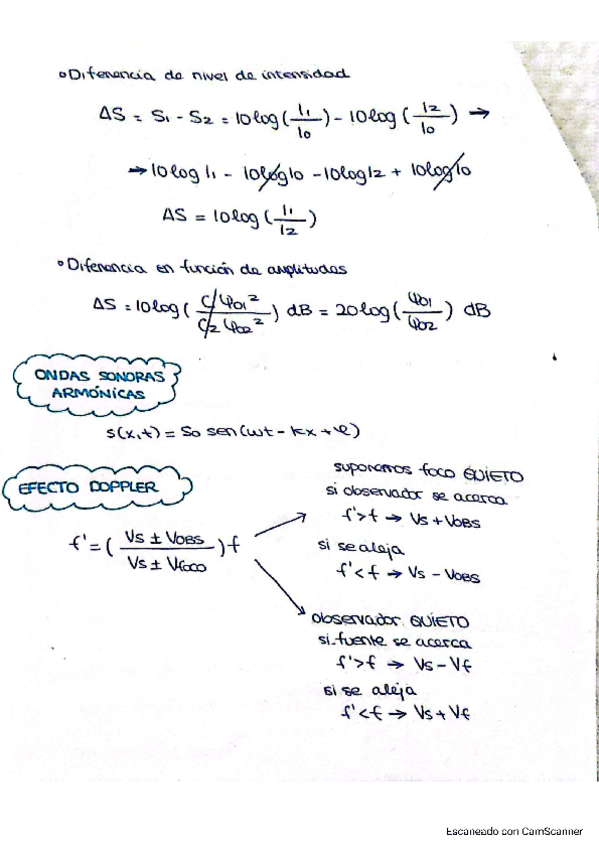 • Diferencia de nivel de intensidad
ΔS = S1 - S2 = 10log(I1/I0) - 10log(I2/I0) →
→ 10log I1 - 10log I0 - 10log I2 + 10log I0
ΔS = 10log(I1/I2)
• Diferencia en función de amplitudes
ΔS = 10log(C/ψ01²/C/2 ψ02²) dB = 20log(ψ01/ψ02) dB
ONDAS SONORAS
ARMÓNICAS
s(x,t) = So sen(ωt - kx + φ)
EFECTO DOPPLER
f' = (Vs ± VOBS/Vs ± Vfoco) f
suponemos foco QUIETO
si observador se acerca
f' > f → Vs + VOBS
si se aleja
f' < f → Vs - VOBS
observador QUIETO
si fuente se acerca
f' > f → Vs - Vf
si se aleja
f' < f → Vs + Vf
Escaneado con CamScanner